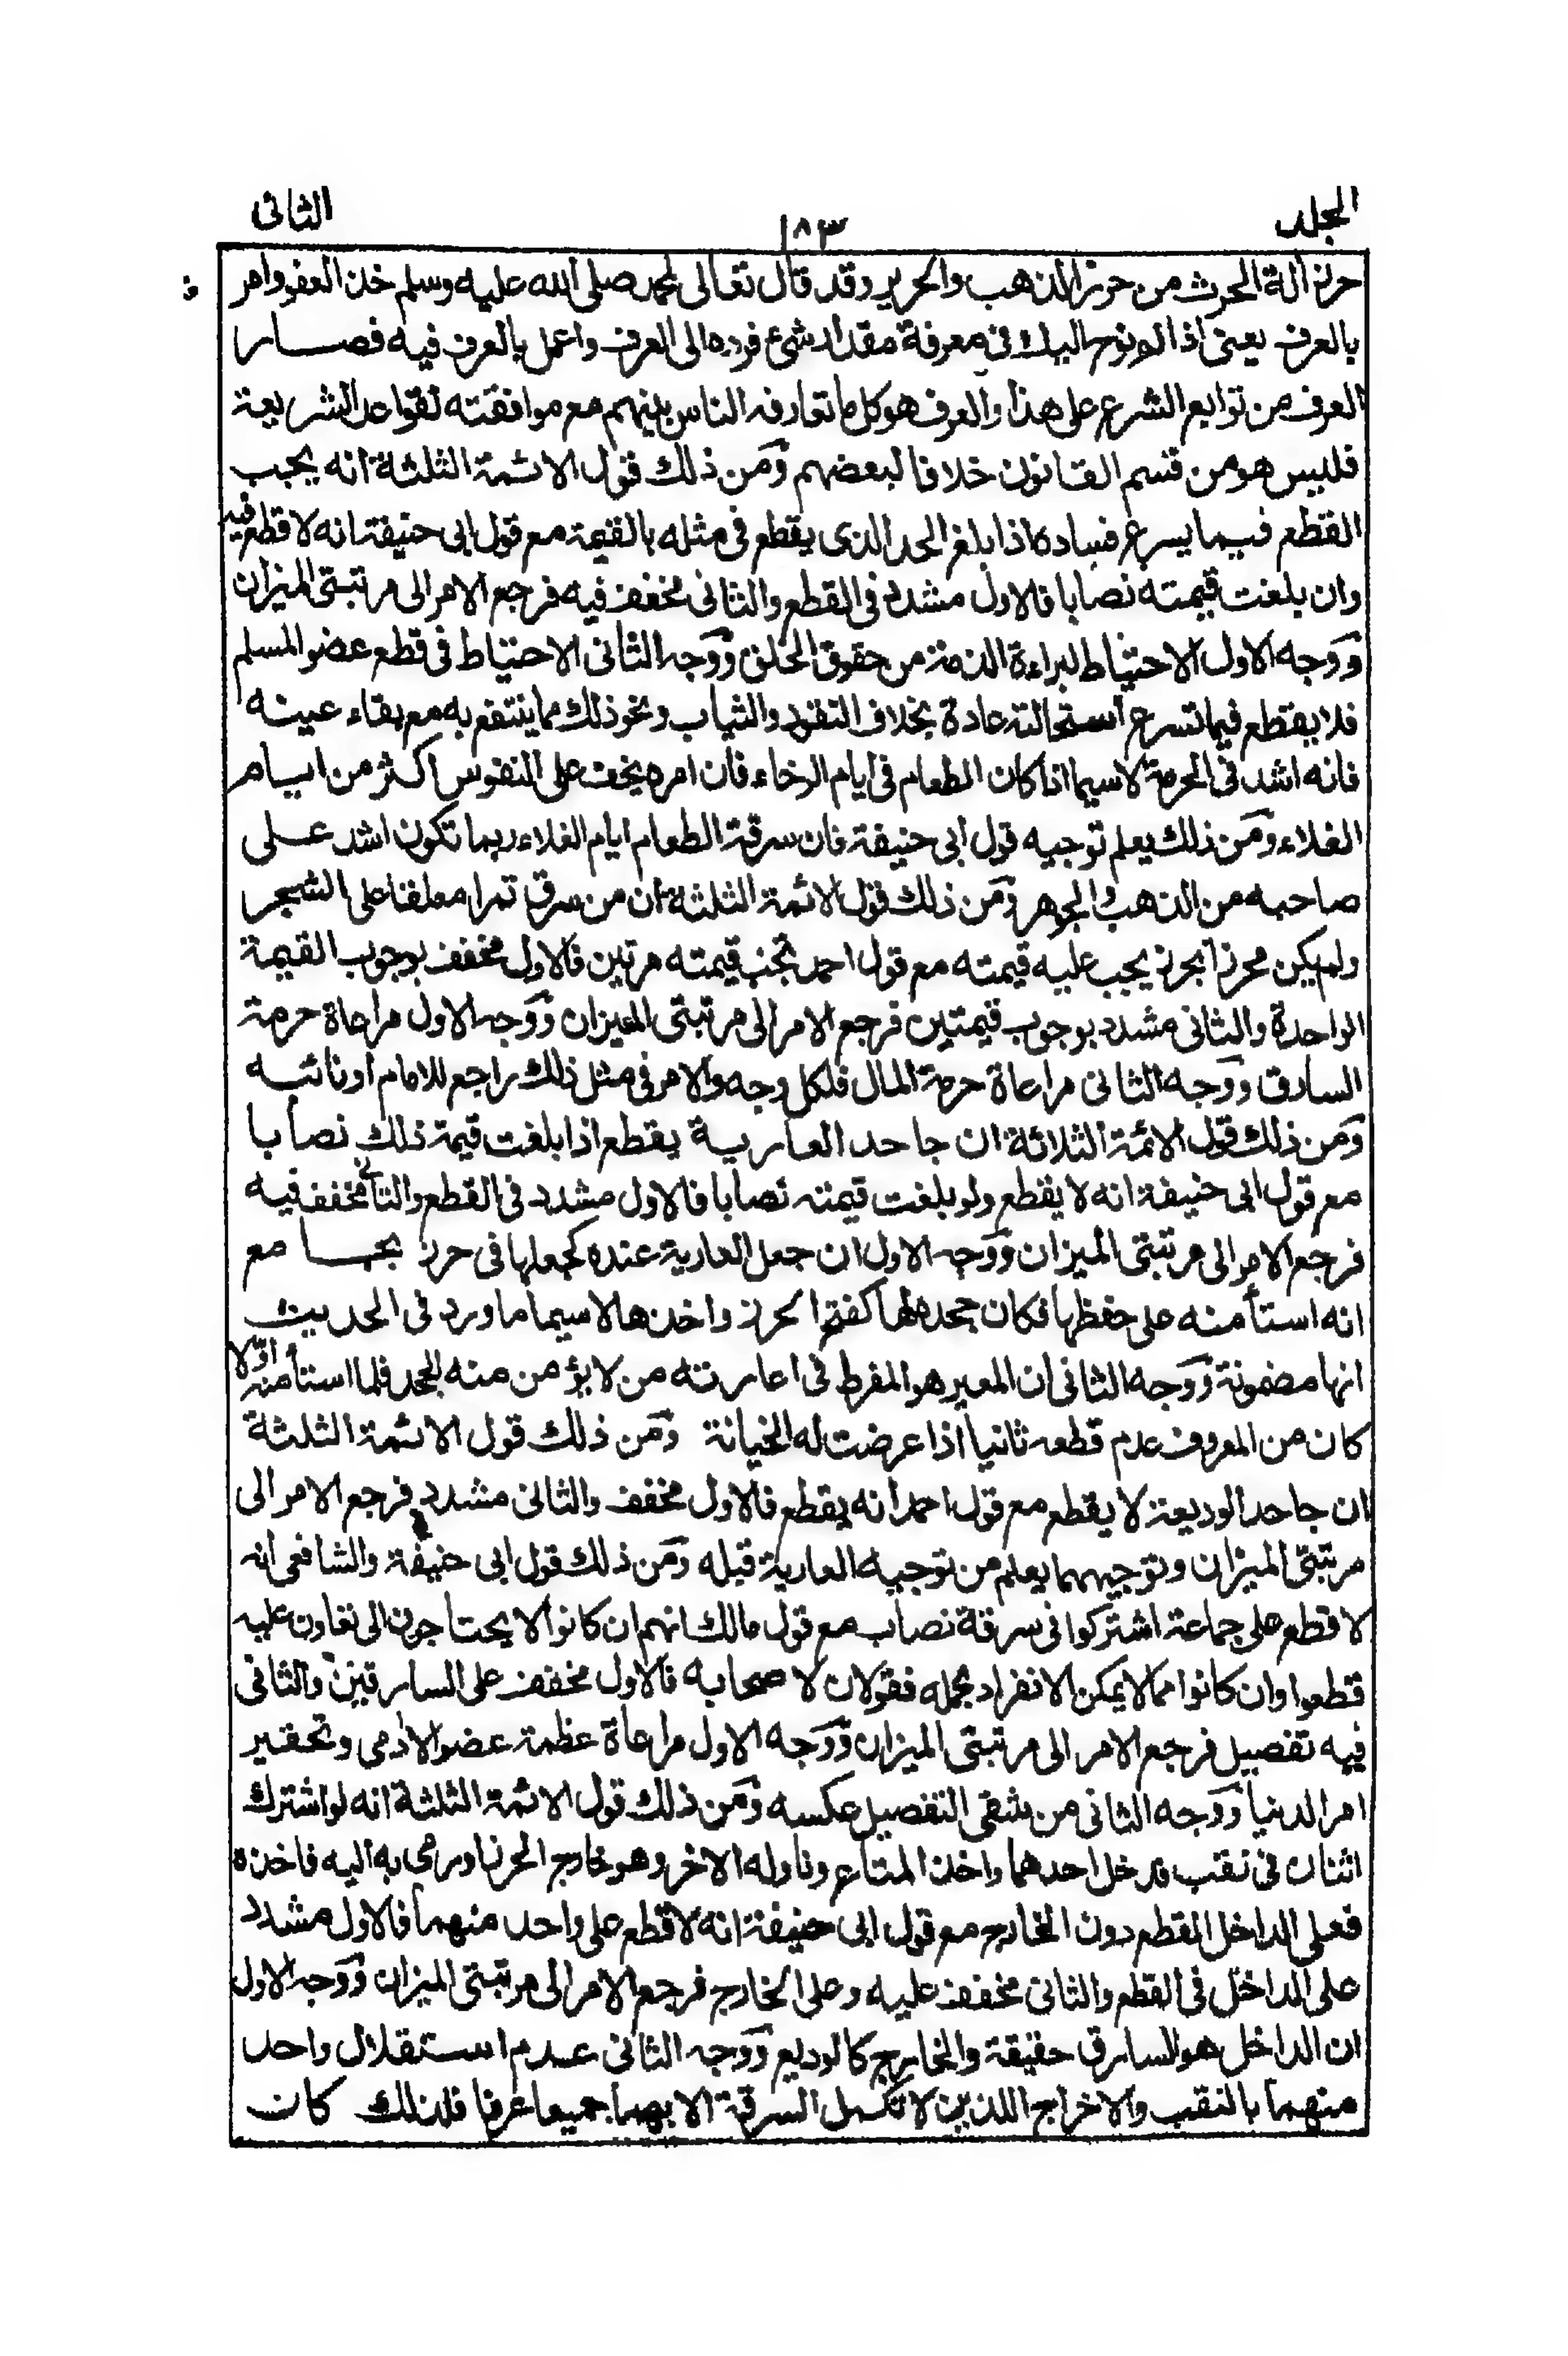 الجلد ١٨٣ الثانى
حرز آلة الحرث من حرز الذهب والحرير وقد قال تعالى لمحمد صلى الله عليه وسلم خذ العفو وامر
بالعرف يعنى اذا لم نوح اليك فى معرفة مقدار شئ فرده الى العرف واعمل بالعرف فيه فصار
العرف من توابع الشرع على هذا والعرف هو كل ما تعارفه الناس بينهم مع موافقته لقواعد الشريعة
فليس هو من قسم القانون خلافا لبعضهم ومن ذلك قول الائمة الثلثة انه يجب
القطع فيما يسرع فساده اذا بلغ الحد الذى يقطع فى مثله بالقيمة مع قول ابى حنيفة انه لا قطع فيه
وان بلغت قيمته نصابا فالاول مشدد فى القطع والثانى مخفف فيه فرجع الامر الى مرتبتى الميزان
ووجه الاول الاحتياط لبراءة الذمة من حقوق الخلق ووجه الثانى الاحتياط فى قطع عضو المسلم
فلا يقطع فيما تسرع استحالته عادة بخلاف النقود والثياب ونحو ذلك مما ينتفع به مع بقاء عينه
فانه اشد فى الحرمة لا سيما اذا كان الطعام فى ايام الرخاء فان امره يخف على النفوس اكثر من ايام
الغلاء ومن ذلك يعلم توجيه قول ابى حنيفة فان سرقة الطعام ايام الغلاء ربما تكون اشد على
صاحبه من الذهب والجوهر ومن ذلك قول الائمة الثلثة ان من سرق تمرا معلقا على الشجر
ولم يكن محرزا بحرز يجب عليه قيمته مع قول احمد تجب قيمته مرتين فالاول مخفف بوجوب القيمة
الواحدة والثانى مشدد بوجوب قيمتين فرجع الامر الى مرتبتى الميزان ووجه الاول مراعاة حرمة
السارق ووجه الثانى مراعاة حرمة المال فلكل وجه والامر فى مثل ذلك راجع للامام او نائبه
ومن ذلك قول الائمة الثلاثة ان جاحد العارية يقطع اذا بلغت قيمة ذلك نصابا
مع قول ابى حنيفة انه لا يقطع ولو بلغت قيمته نصابا فالاول مشدد فى القطع والثانى مخفف فيه
فرجع الامر الى مرتبتى الميزان ووجه الاول ان جعل العارية عنده كجعلها فى حرز بجامع
انه استأمنه على حفظها فكان جحده لها كفتح الحرز واخذها لا سيما ما ورد فى الحديث
انها مضمونة ووجه الثانى ان المعير هو المفرط فى اعارته من لا يؤمن منه الجحد فلما استأمنه اولا
كان من المعروف عدم قطعه ثانيا اذا عرضت له الخيانة ومن ذلك قول الائمة الثلثة
ان جاحد الوديعة لا يقطع مع قول احمد انه يقطع فالاول مخفف والثانى مشدد فرجع الامر الى
مرتبتى الميزان وتوجيههما يعلم من توجيه العارية قبله ومن ذلك قول ابى حنيفة والشافعى انه
لا قطع على جماعة اشتركوا فى سرقة نصاب مع قول مالك انهم ان كانوا لا يحتاجون الى تعاون عليه
قطعوا وان كانوا مما لا يمكن الانفراد بحمله فقولان لاصحابه فالاول مخفف على السارقين والثانى
فيه تفصيل فرجع الامر الى مرتبتى الميزان ووجه الاول مراعاة عظمة عضو الادمى وتحقير
امر الدنيا ووجه الثانى من شقى التفصيل عكسه ومن ذلك قول الائمة الثلثة انه لو اشترك
اثنان فى نقب فدخل احدهما واخذ المتاع وناوله الاخر وهو خارج الحرز او رمى به اليه فاخذه
فعلى الداخل القطع دون الخارج مع قول ابى حنيفة انه لا قطع على واحد منهما فالاول مشدد
على الداخل فى القطع والثانى مخفف عليه وعلى الخارج فرجع الامر الى مرتبتى الميزان ووجه الاول
ان الداخل هو السارق حقيقة والخارج كالوديع ووجه الثانى عدم استقلال واحد
منهما بالنقب والاخراج اللذين لا تكمل السرقة الا بهما جميعا عرفا فلذلك كان